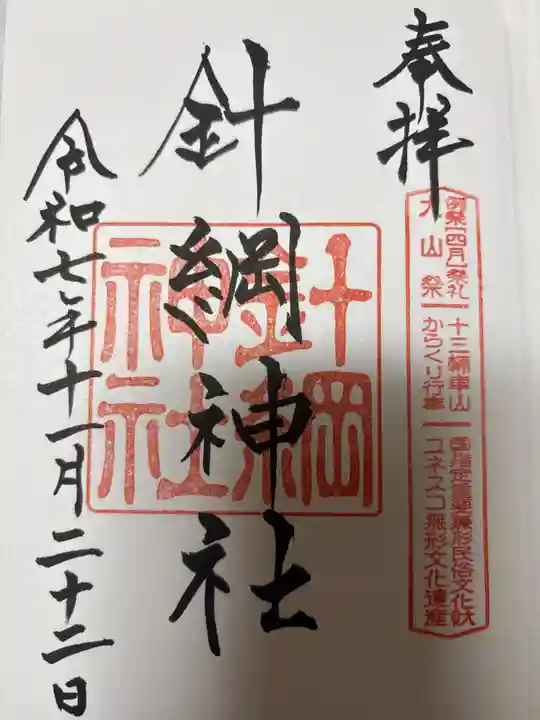 奉拝
例祭「四月」祭礼 十三輛車山 国指定重要無形民俗文化財
犬山祭 からくり行事 ユネスコ無形文化遺産
針綱神社
針綱神社
令和七年十一月二十二日